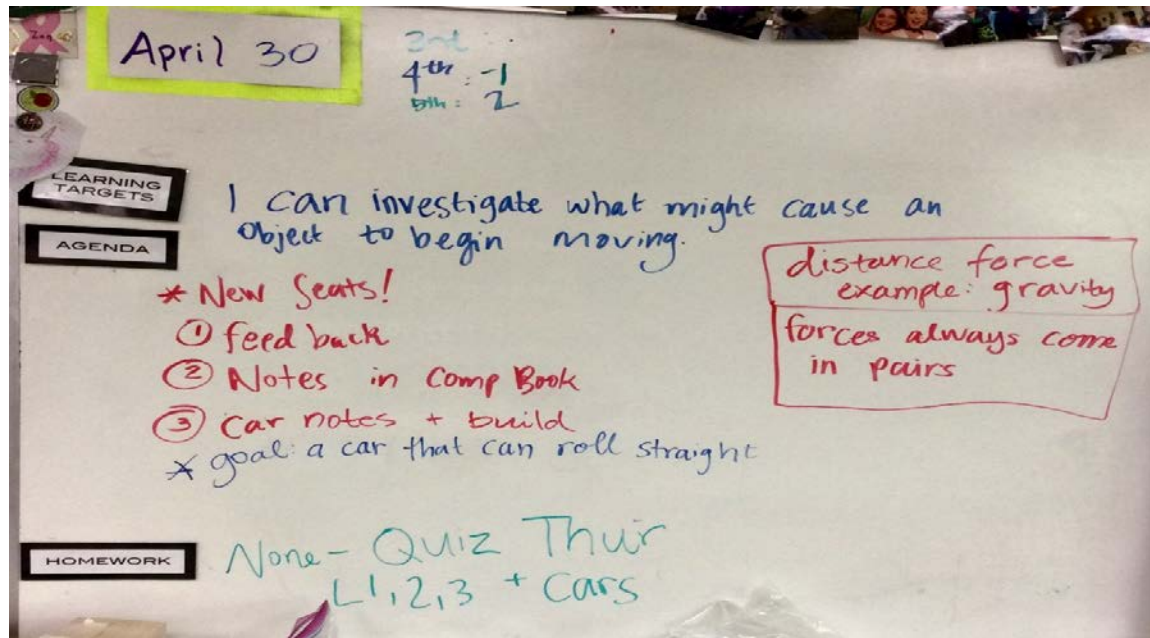 April 30
3rd :
4th : -1
5th : 2
LEARNING
TARGETS
I can investigate what might cause an
object to begin moving.
AGENDA
* New Seats!
① feedback
② Notes in Comp Book
③ Car notes + build
* goal: a car that can roll straight
distance force
example: gravity
forces always come
in pairs
HOMEWORK
None - Quiz Thur
L1,2,3 + Cars